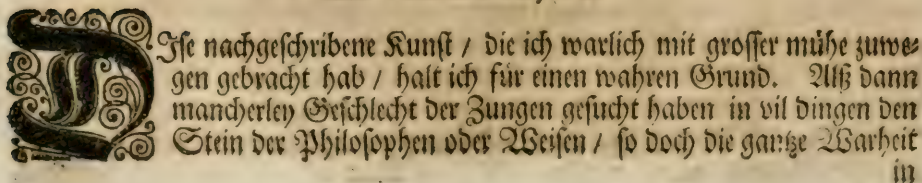 DIse nachgeschribene Kunst / die ich warlich mit grosser mühe zuwe-
gen gebracht hab / halt ich für einen wahren Grund. Alß dann
mancherley Geschlecht der Zungen gesucht haben in vil dingen den
Stein der Philosophen oder Weisen / so doch die gantze Warheit
in